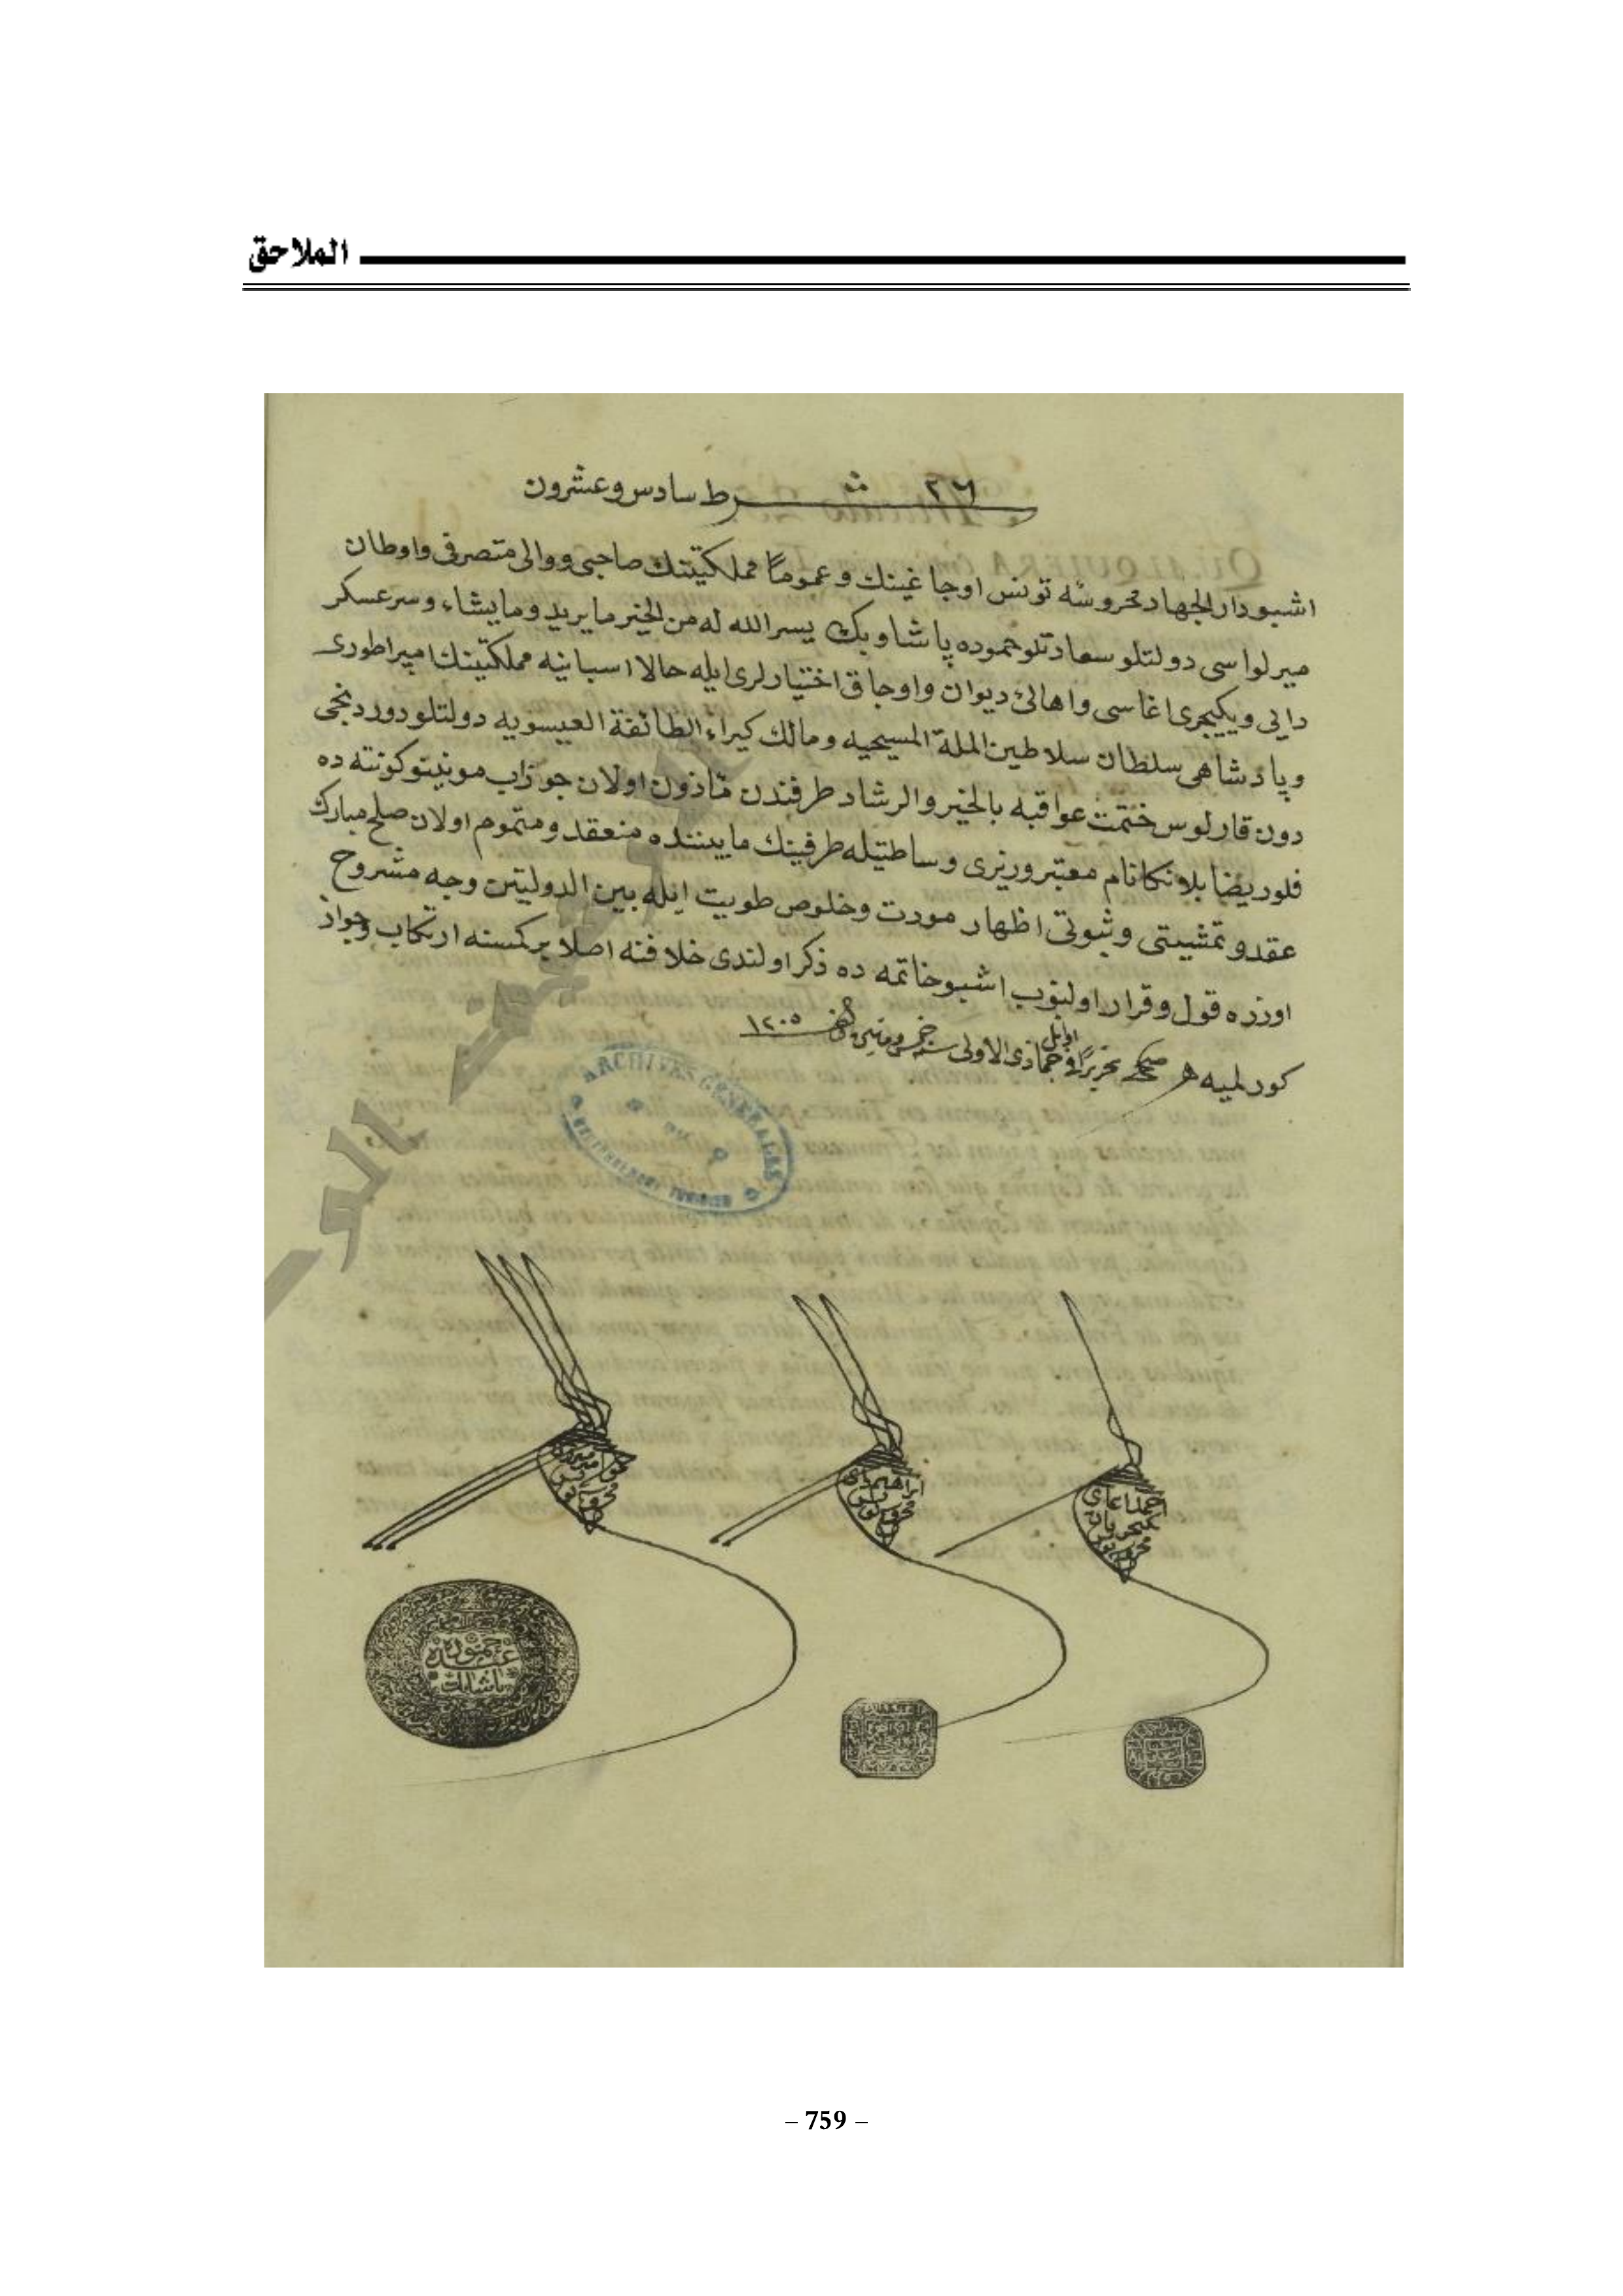 الملاحق
٢٦ شرط سادس وعشرون
اشبو دار الجهاد محروسه تونس اوجاغينك وعموماً مملكتينك صاحبى ووالى متصرفى واوطان
ميرلواسى دولتلو سعادتلو حموده پاشا وبك يسر الله له من الخير ما يريد وما يشاء وسرعسكر
دايى ويكيجرى اغاسى واهالئ ديوان واوجاق اختيارلرى ايله حالا اسبانيه مملكتينك امپراطورى
وپادشاهى سلطان سلاطين الملة المسيحيه ومالك كبراء الطائفة العيسويه دولتلو دوردنجى
دون قارلوس ختمت عواقبه بالخير والرشاد طرفندن مأذون اولان جوزاب مونينو كونته ده
فلوريضا بلانكا نام معتبر وزيرى وساطتيله طرفينك مابيننده منعقد ومتموم اولان صلح مبارك
عقد وتمشيتى وثبوتى اظهار مودت وخلوص طويت ايله بين الدولتين وجه مشروح
اوزره قول وقرار اولنوب اشبو خاتمه ده ذكر اولندى خلافنه اصلا بركمسنه ارتكاب وجواز
كورلميه صح تحريراً فى اوايل جمادى الاولى سنه خمس ومئتين والف ١٢٠٥
ARCHIVES GENERALES
حموده
عبده
پاشا بك
– 759 –